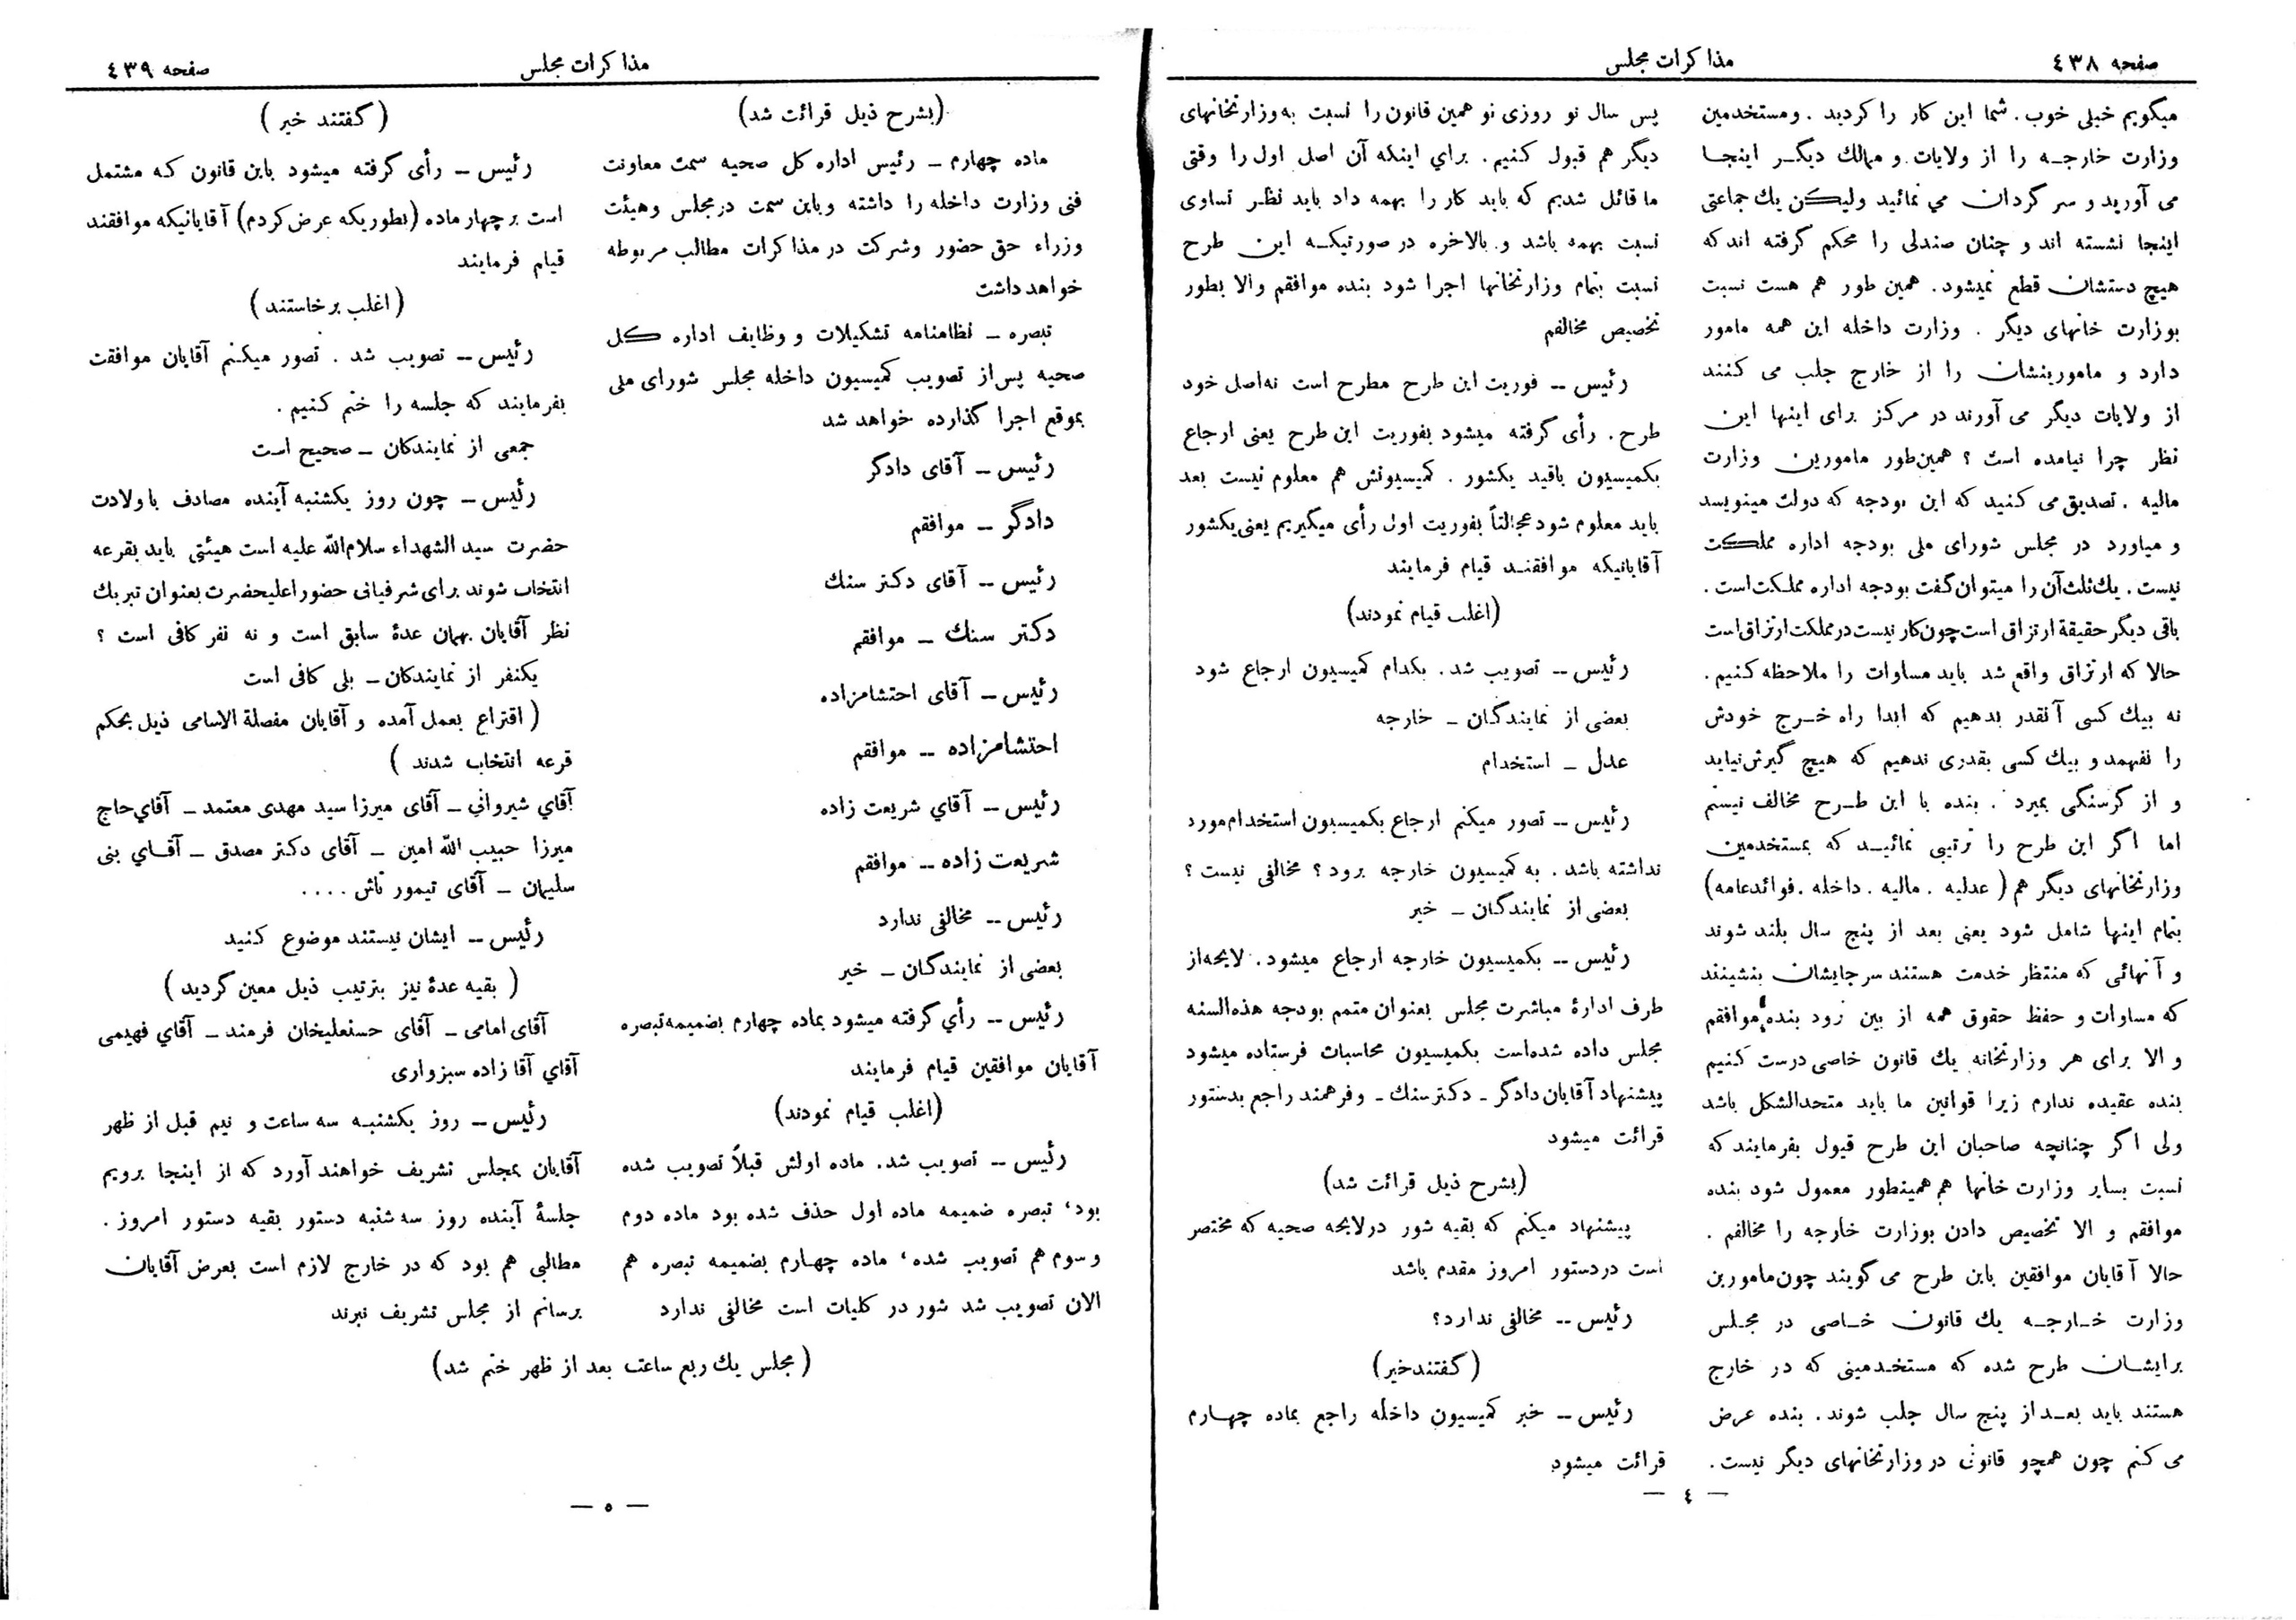 صفحه ٤٣٨
مذاکرات مجلس
میگویم خیلی خوب. شما این کار را کردید. ومستخدمین
وزارت خارجـه را از ولایات و ممالك دیگـر اینجـا
می آورید و سر گردان می نمائید ولیکن یك جماعتی
اینجا نشسته اند و چنان صندلی را محکم گرفته اند که
هیچ دستشان قطع نمیشود. همین طور هم هست نسبت
بوزارت خانهای دیگر . وزارت داخله این همه مامور
دارد و مامورینشان را از خارج جلب می کنند
از ولایات دیگر می آورند در مرکز برای اینها این
نظر چرا نیامده است ؟ همین‌طور مامورین وزارت
مالیه . تصدیق می کنید که این بودجه که دولت مینویسد
و میاورد در مجلس شورای ملی بودجه اداره مملکت
نیست. یك ثلث آن را میتوان گفت بودجه اداره مملکت است.
باقی دیگر حقیقة ارتزاق است چون کار نیست در مملکت ارتزاق است
حالا که ارتزاق واقع شد باید مساوات را ملاحظه کنیم.
نه بیك کسی آنقدر بدهیم که ابدا راه خـرج خودش
را نفهمد و بیك کسی بقدری ندهیم که هیچ گیرش نیاید
و از گرسنگی بمیرد . بنده با این طـرح مخالف نیستم
اما اگر این طرح را ترتیبی نمائیـد که بمستخدمین
وزارتخانهای دیگر هم ( عدلیه . مالیه . داخله .فوائدعامه)
بتمام اینها شامل شود یعنی بعد از پنج سال بلند شوند
و آنهائی که منتظر خدمت هستند سرجایشان بنشینند
که مساوات و حفظ حقوق همه از بین نرود بنده موافقم
و الا برای هر وزارتخانه یك قانون خاصی درست کنیم
بنده عقیده ندارم زیرا قوانین ما باید متحدالشکل باشد
ولی اگر چنانچه صاحبان این طرح قبول بفرمایند که
نسبت بسایر وزارت خانها هم همینطور معمول شود بنده
موافقم و الا تخصیص دادن بوزارت خارجه را مخالفم .
حالا آقایان موافقین باین طرح می گویند چون مامورین
وزارت خـارجـه یك قانون خـاصی در مجـلس
برایشـان طرح شده که مستخـدمینی که در خارج
هستند باید بعـد از پنج سال جلب شوند. بنده عرض
می کنم چون همچو قانونی در وزارتخانهای دیگر نیست.
پس سال نو روزی نو همین قانون را نسبت به وزارتخانهای
دیگر هم قبول کنیم. برای اینکه آن اصل اول را وقتی
ما قائل شدیم که باید کار را بهمه داد باید نظـر تساوی
نسبت بهمه باشد و بالاخره در صورتیکـه این طرح
نسبت بتمام وزارتخانها اجرا شود بنده موافقم والا بطور
تخصیص مخالفم
رئیس -- فوریت این طرح مطرح است نه اصل خود
طرح. رأی گرفته میشود بفوریت این طرح یعنی ارجاع
بکمیسیون باقید یکشور . کمیسیونش هم معلوم نیست بعد
باید معلوم شود عجالتاً بفوریت اول رأی میگیریم یعنی یکشور
آقایانیکه موافقنـد قیام فرمایند
(اغلب قیام نمودند)
رئیس -- تصویب شد. بکدام کمیسیون ارجاع شود
بعضی از نمایندگان - خارجه
عدل - استخدام
رئیس -- تصور میکنم ارجاع بکمیسیون استخدام مورد
نداشته باشد. به کمیسیون خارجه برود؟ مخالفی نیست؟
بعضی از نمایندگان - خیر
رئیس -- بکمیسیون خارجه ارجاع میشود. لایحه از
طرف ادارهٔ مباشرت مجلس بعنوان متمم بودجه هذه‌السنه
مجلس داده شده است بکمیسیون محاسبات فرستاده میشود
پیشنهاد آقایان دادگر - دکتر سنك - وفرهمند راجع بدستور
قرائت میشود
(بشرح ذیل قرائت شد)
پیشنهاد میکنم که بقیه شور در لایحه صحیه که مختصر
است در دستور امروز مقدم باشد
رئیس -- مخالفی ندارد؟
(گفتند خیر)
رئیس -- خبر کمیسیون داخله راجع بماده چهـارم
قرائت میشود
— ٤ —
مذاکرات مجلس
صفحه ٤٣٩
(بشرح ذیل قرائت شد)
ماده چهارم - رئیس اداره کل صحیه سمت معاونت
فنی وزارت داخله را داشته و باین سمت در مجلس وهیئت
وزراء حق حضور وشرکت در مذاکرات مطالب مربوطه
خواهد داشت
تبصره - نظامنامه تشکیلات و وظایف اداره کل
صحیه پس از تصویب کمیسیون داخله مجلس شورای ملی
بموقع اجرا گذارده خواهد شد
رئیس - آقای دادگر
دادگر - موافقم
رئیس -- آقای دکتر سنك
دکتر سنك - موافقم
رئیس - آقای احتشامزاده
احتشامزاده -- موافقم
رئیس - آقاي شریعت زاده
شریعت زاده -- موافقم
رئیس -- مخالفی ندارد
بعضی از نمایندگان - خیر
رئیس -- رأي گرفته میشود بماده چهارم بضمیمه تبصره
آقایان موافقین قیام فرمایند
(اغلب قیام نمودند)
رئیس -- تصویب شد. ماده اولش قبلاً تصویب شده
بود، تبصره ضمیمه ماده اول حذف شده بود ماده دوم
و سوم هم تصویب شده، ماده چهـارم بضمیمه تبصره هم
الان تصویب شد شور در کلیات است مخالفی ندارد
(گفتند خیر)
رئیس -- رأی گرفته میشود باین قانون که مشتمل
است بر چهار ماده (بطوریکه عرض کردم) آقایانیکه موافقند
قیام فرمایند
(اغلب برخاستند)
رئیس -- تصویب شد. تصور میکنم آقایان موافقت
بفرمایند که جلسه را ختم کنیم.
جمعی از نمایندگان - صحیح است
رئیس - چون روز یکشنبه آینده مصادف با ولادت
حضرت سید الشهداء سلام‌الله علیه است هیئتی باید بقرعه
انتخاب شوند برای شرفیابی حضور اعلیحضرت بعنوان تبریك
نظر آقایان بهمان عدهٔ سابق است و نه نفر کافی است ؟
یکنفر از نمایندگان - بلی کافی است
( اقتراع بعمل آمده و آقایان مفصلة الاسامی ذیل بحکم
قرعه انتخاب شدند )
آقاي شیرواني - آقای میرزا سید مهدی معتمد - آقاي حاج
میرزا حبیب الله امین - آقای دکتر مصدق - آقـاي بنی
سلیمان - آقای تیمور تاش ....
رئیس -- ایشان نیستند موضوع کنید
( بقیه عدهٔ نیز بترتیب ذیل معین گردید )
آقای امامی - آقای حسنعلیخان فرمند - آقاي فهیمی
آقاي آقا زاده سبزواری
رئیس - روز یکشنبـه سه ساعت و نیم قبل از ظهر
آقایان بمجلس تشریف خواهند آورد که از اینجا برویم
جلسهٔ آینده روز سه شنبه دستور بقیه دستور امروز.
مطالبی هم بود که در خارج لازم است بعرض آقایان
برسانم از مجلس تشریف نبرند
(مجلس یك ربع ساعت بعد از ظهر ختم شد)
— ٥ —